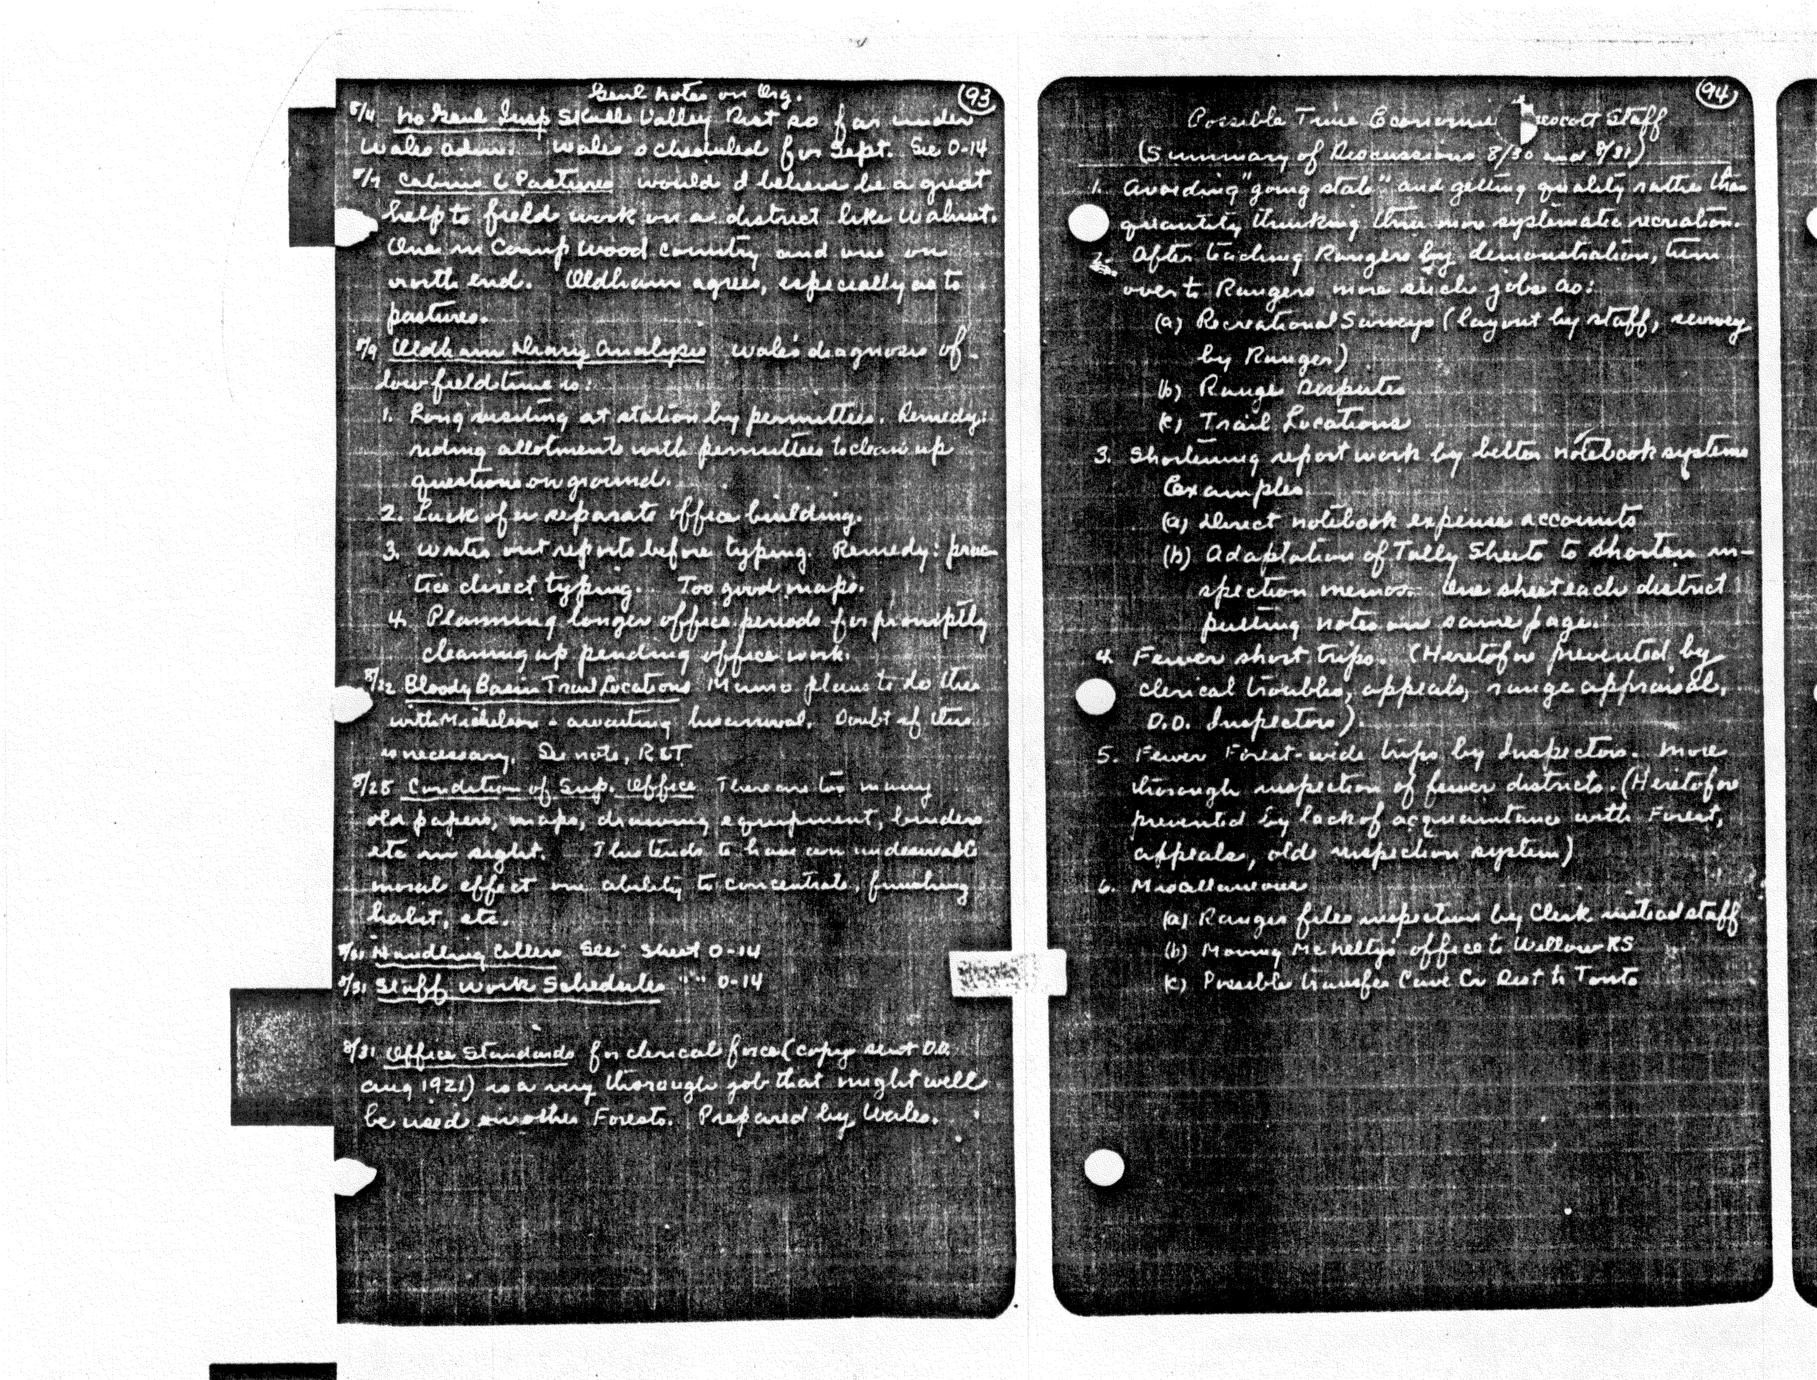 Genl notes on Org.
93
8/4 No Genl Insp Skull Valley Dist so far under
Wales adm. Wales scheduled for Sept. See O-14
8/7 Cabins & Pastures would I believe be a great
help to field work on a district like Walnut.
One in Camp Wood country and one on
north end. Oldham agrees, especially as to
pastures.
8/9 Oldham Diary Analysis Wales diagnosis of
low field time is:
1. Long visiting at station by permittees. Remedy:
riding allotments with permittees to clean up
questions on ground.
2. Lack of a separate office building.
3. Writes out reports before typing. Remedy: prac-
tice direct typing. Too good maps.
4. Planning longer office periods for promptly
cleaning up pending office work.
8/22 Bloody Basin Trail Locations Munro plans to do this
with Mickelson - awaiting his arrival. Doubt if this
is necessary. See note, R&T
8/28 Condition of Sup. Office There are too many
old papers, maps, drawing equipment, binders
etc in sight. This tends to have an undesirable
moral effect on ability to concentrate, finishing
habit, etc.
8/31 Handling Callers See Sheet O-14
8/31 Staff Work Schedules " " O-14
8/31 Office Standards for clerical force (copy sent D.O.
Aug 1921) is a very thorough job that might well
be used on other Forests. Prepared by Wales.
94
Possible Time Economies Prescott Staff
(Summary of Discussions 8/30 and 8/31)
1. Avoiding "going stale" and getting quality rather than
quantity thinking thru more systematic recreation.
2. After teaching Rangers by demonstration, turn
over to Rangers more such jobs as:
(a) Recreational Surveys (layout by staff, survey
by Ranger)
(b) Range Disputes
(c) Trail Locations
3. Shortening report work by better notebook systems
Examples
(a) Direct notebook expense accounts
(b) Adaptation of Tally Sheets to shorten in-
spection memos. One sheet each district
putting notes on same page.
4. Fewer short trips. (Heretofore prevented by
clerical troubles, appeals, range appraisal,
D.O. Inspectors).
5. Fewer Forest-wide trips by Inspectors. More
thorough inspection of fewer districts. (Heretofore
prevented by lack of acquaintance with Forest,
appeals, old inspection system)
6. Miscellaneous
(a) Ranger files inspection by Clerk instead staff
(b) Moving McNelty's office to Willow RS
(c) Possible transfer Cave Cr Dist to Tonto